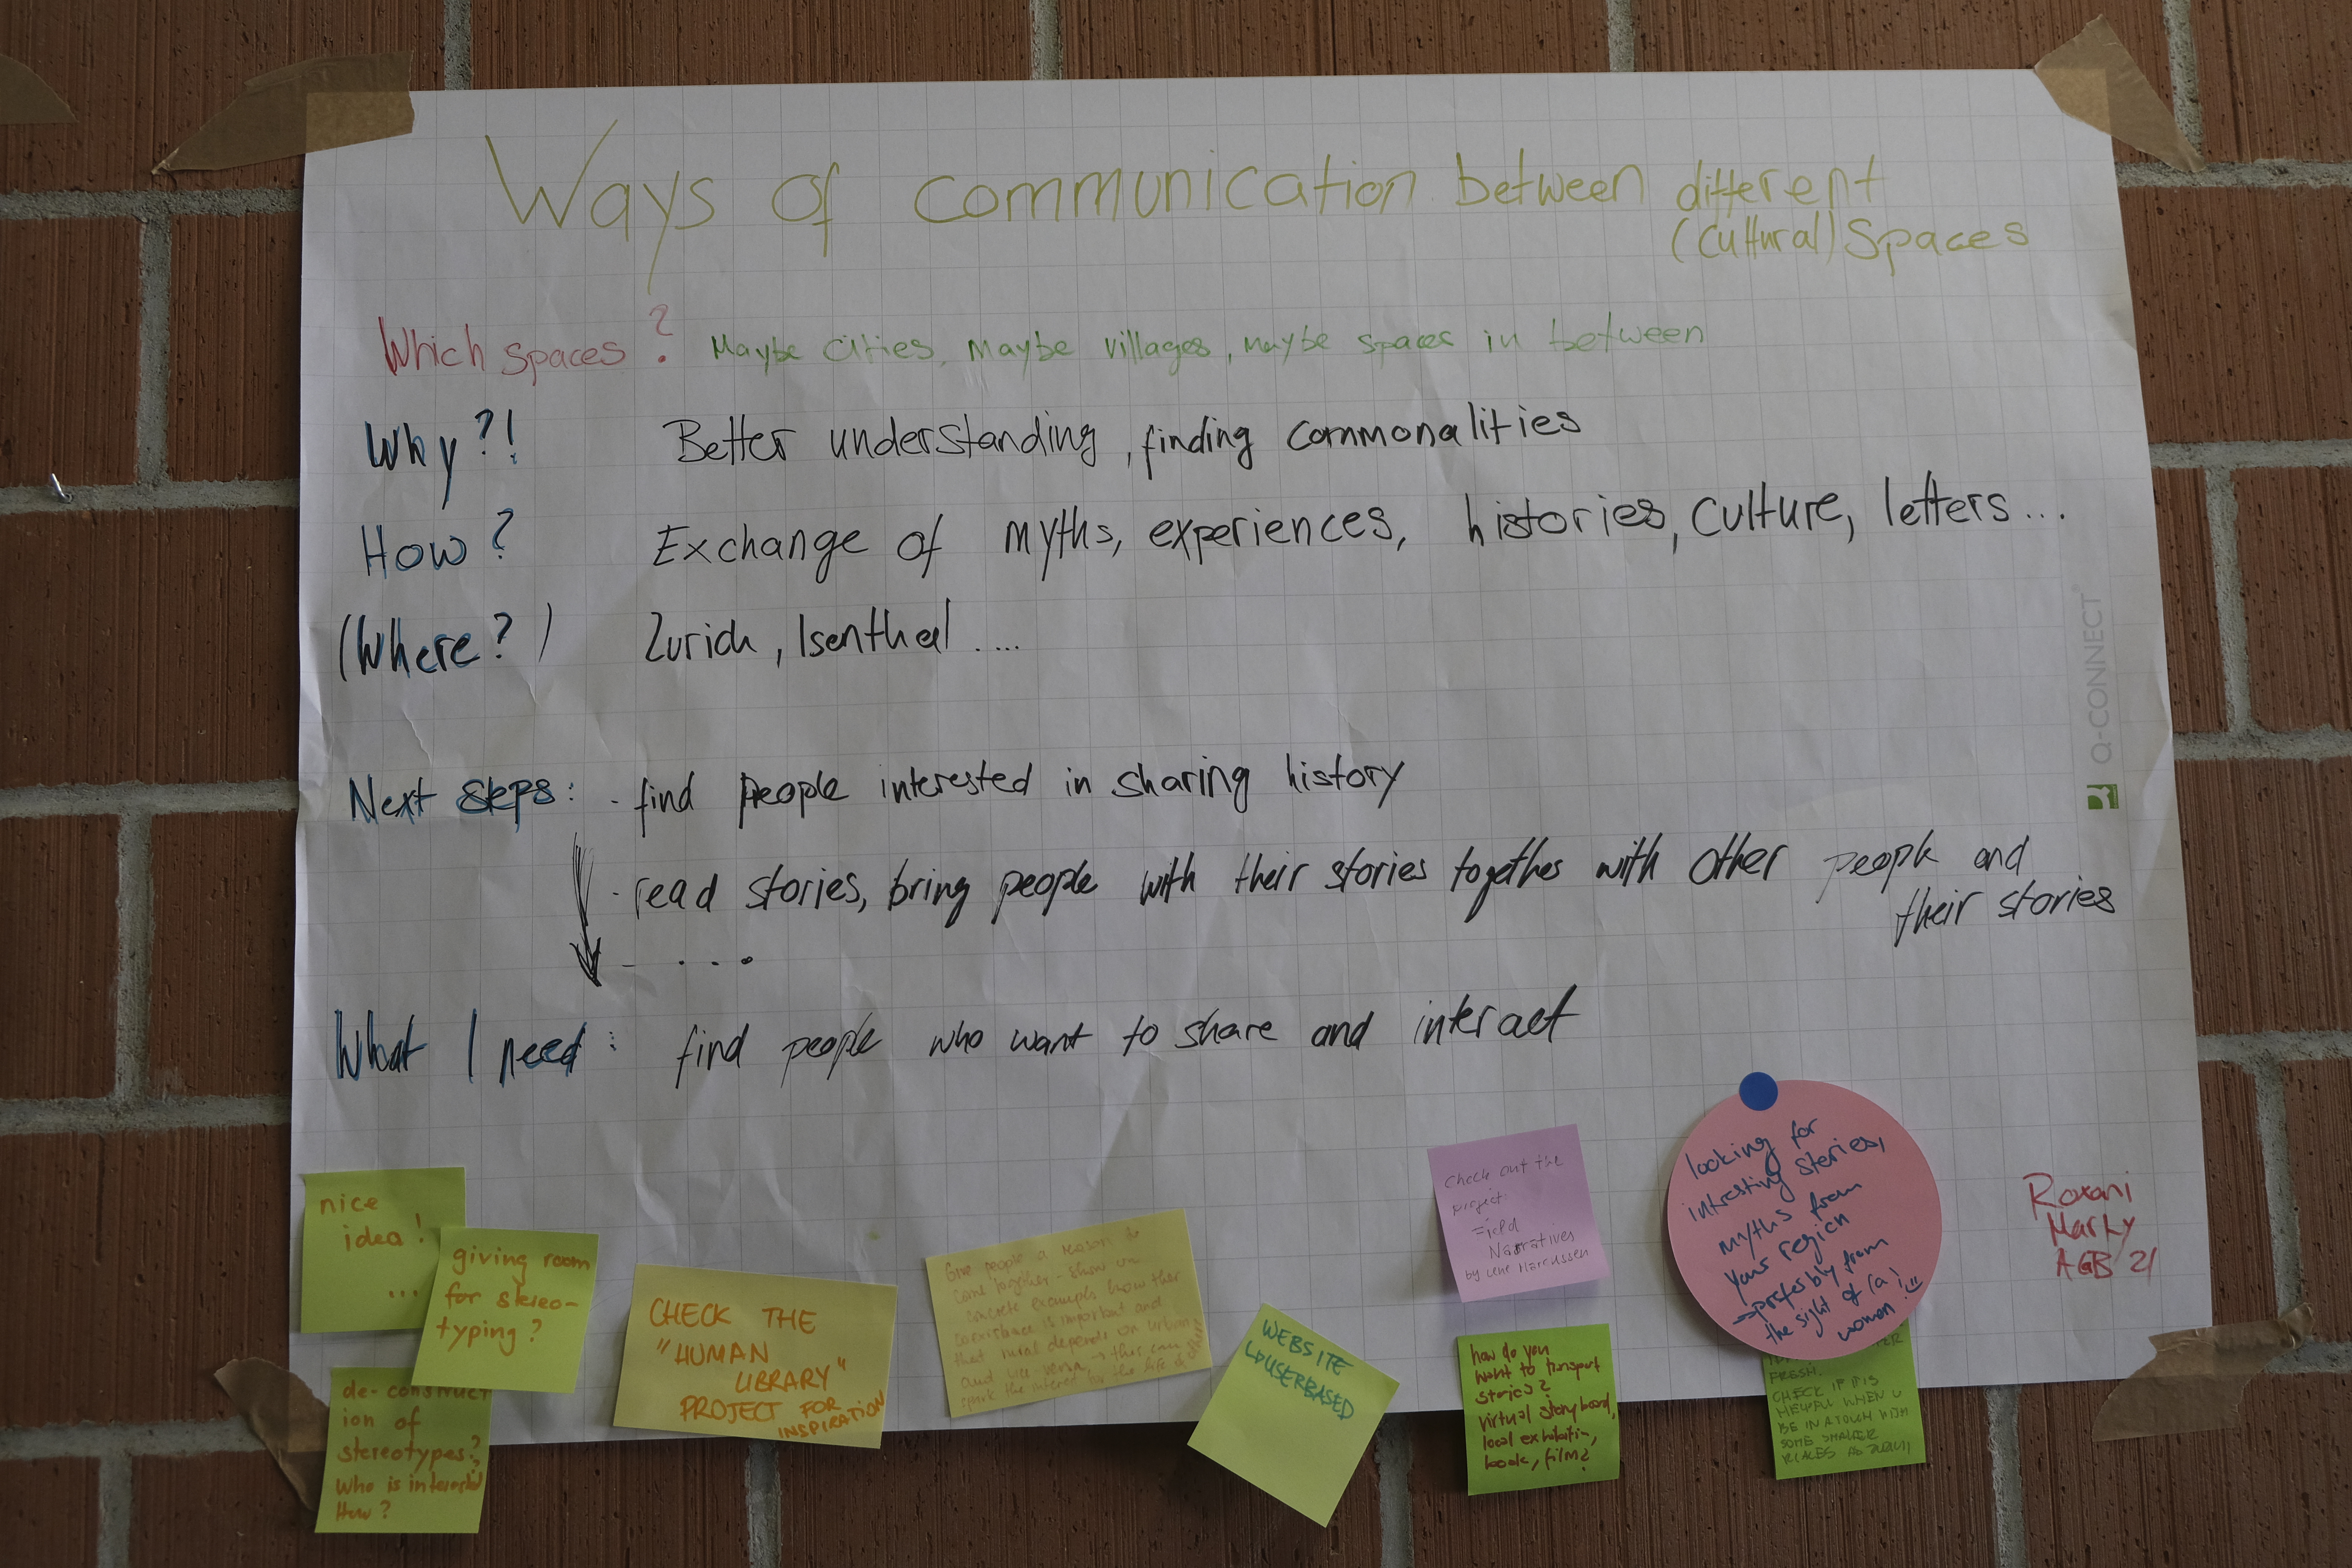 Ways of communication between different
(cultural) Spaces
Which spaces? Maybe cities, Maybe villages, maybe spaces in between
Why?! Better understanding, finding commonalities
How? Exchange of myths, experiences, histories, culture, letters...
(Where?) Zurich, Isenthal ....
Next steps: - find people interested in sharing history
- read stories, bring people with their stories together with other people and
their stories
- ...
What I need: find people who want to share and interact
Q-CONNECT
nice
idea!
...
giving room
for stereo-
typing?
de-construct
ion of
stereotypes?
Who is interested
How?
CHECK THE
"HUMAN
LIBRARY"
PROJECT FOR
INSPIRATION
Give people a reason to
come together - show on
concrete examples how their
coexistence is important and
that rural depends on urban
and vice-versa → this can
spark the interest for the life of
WEBSITE
↳ USERBASED
Check out the
project:
Field
Narratives
by Lene Marcussen
how do you
want to transport
stories?
virtual storyboard,
local exhibition,
book, film?
looking for
intresting stories,
myths from
your region
→ prefesbly from
the sight of (a)
women!
FRESH.
CHECK IF IT IS
HELPFUL WHEN U
BE IN A TOUCH WITH
SOME SMALLER
PLACES AS
Roxani
Marty
AGB 21